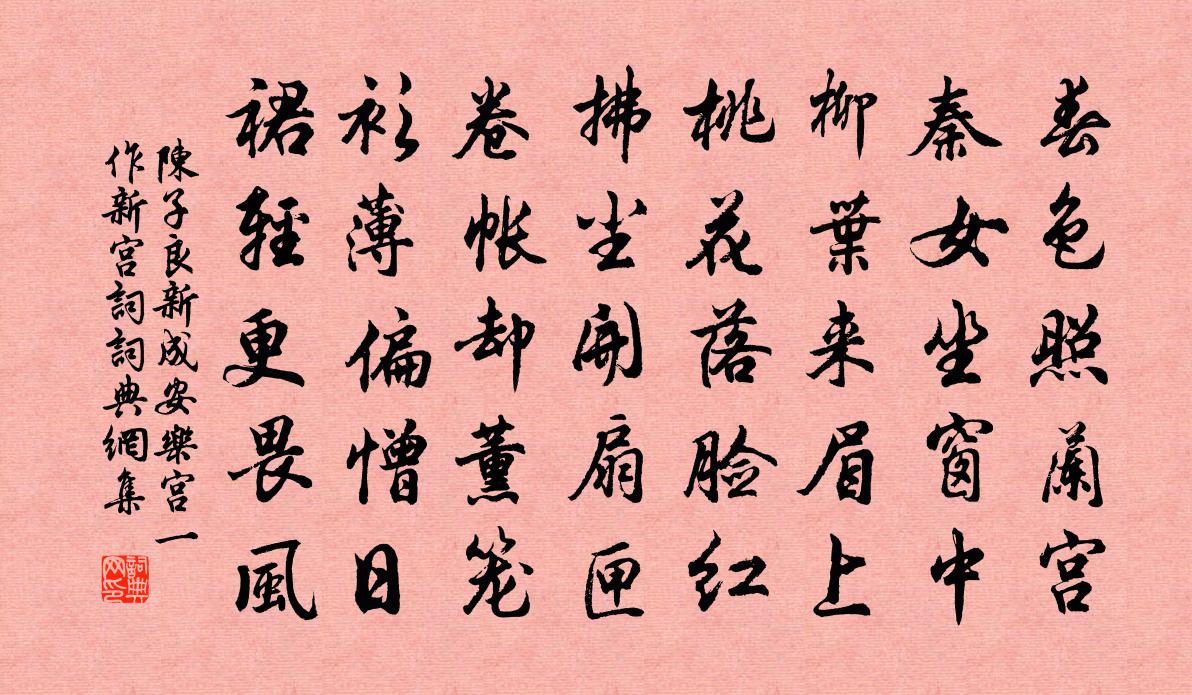 春色照蘭宫
秦女坐窗中
柳葉来眉上
桃花落脸红
拂尘開扇匣
卷帐却薰笼
衫薄偏憎日
裙輕更畏風
陳子良新成安樂宫一
作新宫詞詞典網集
詞典
网印